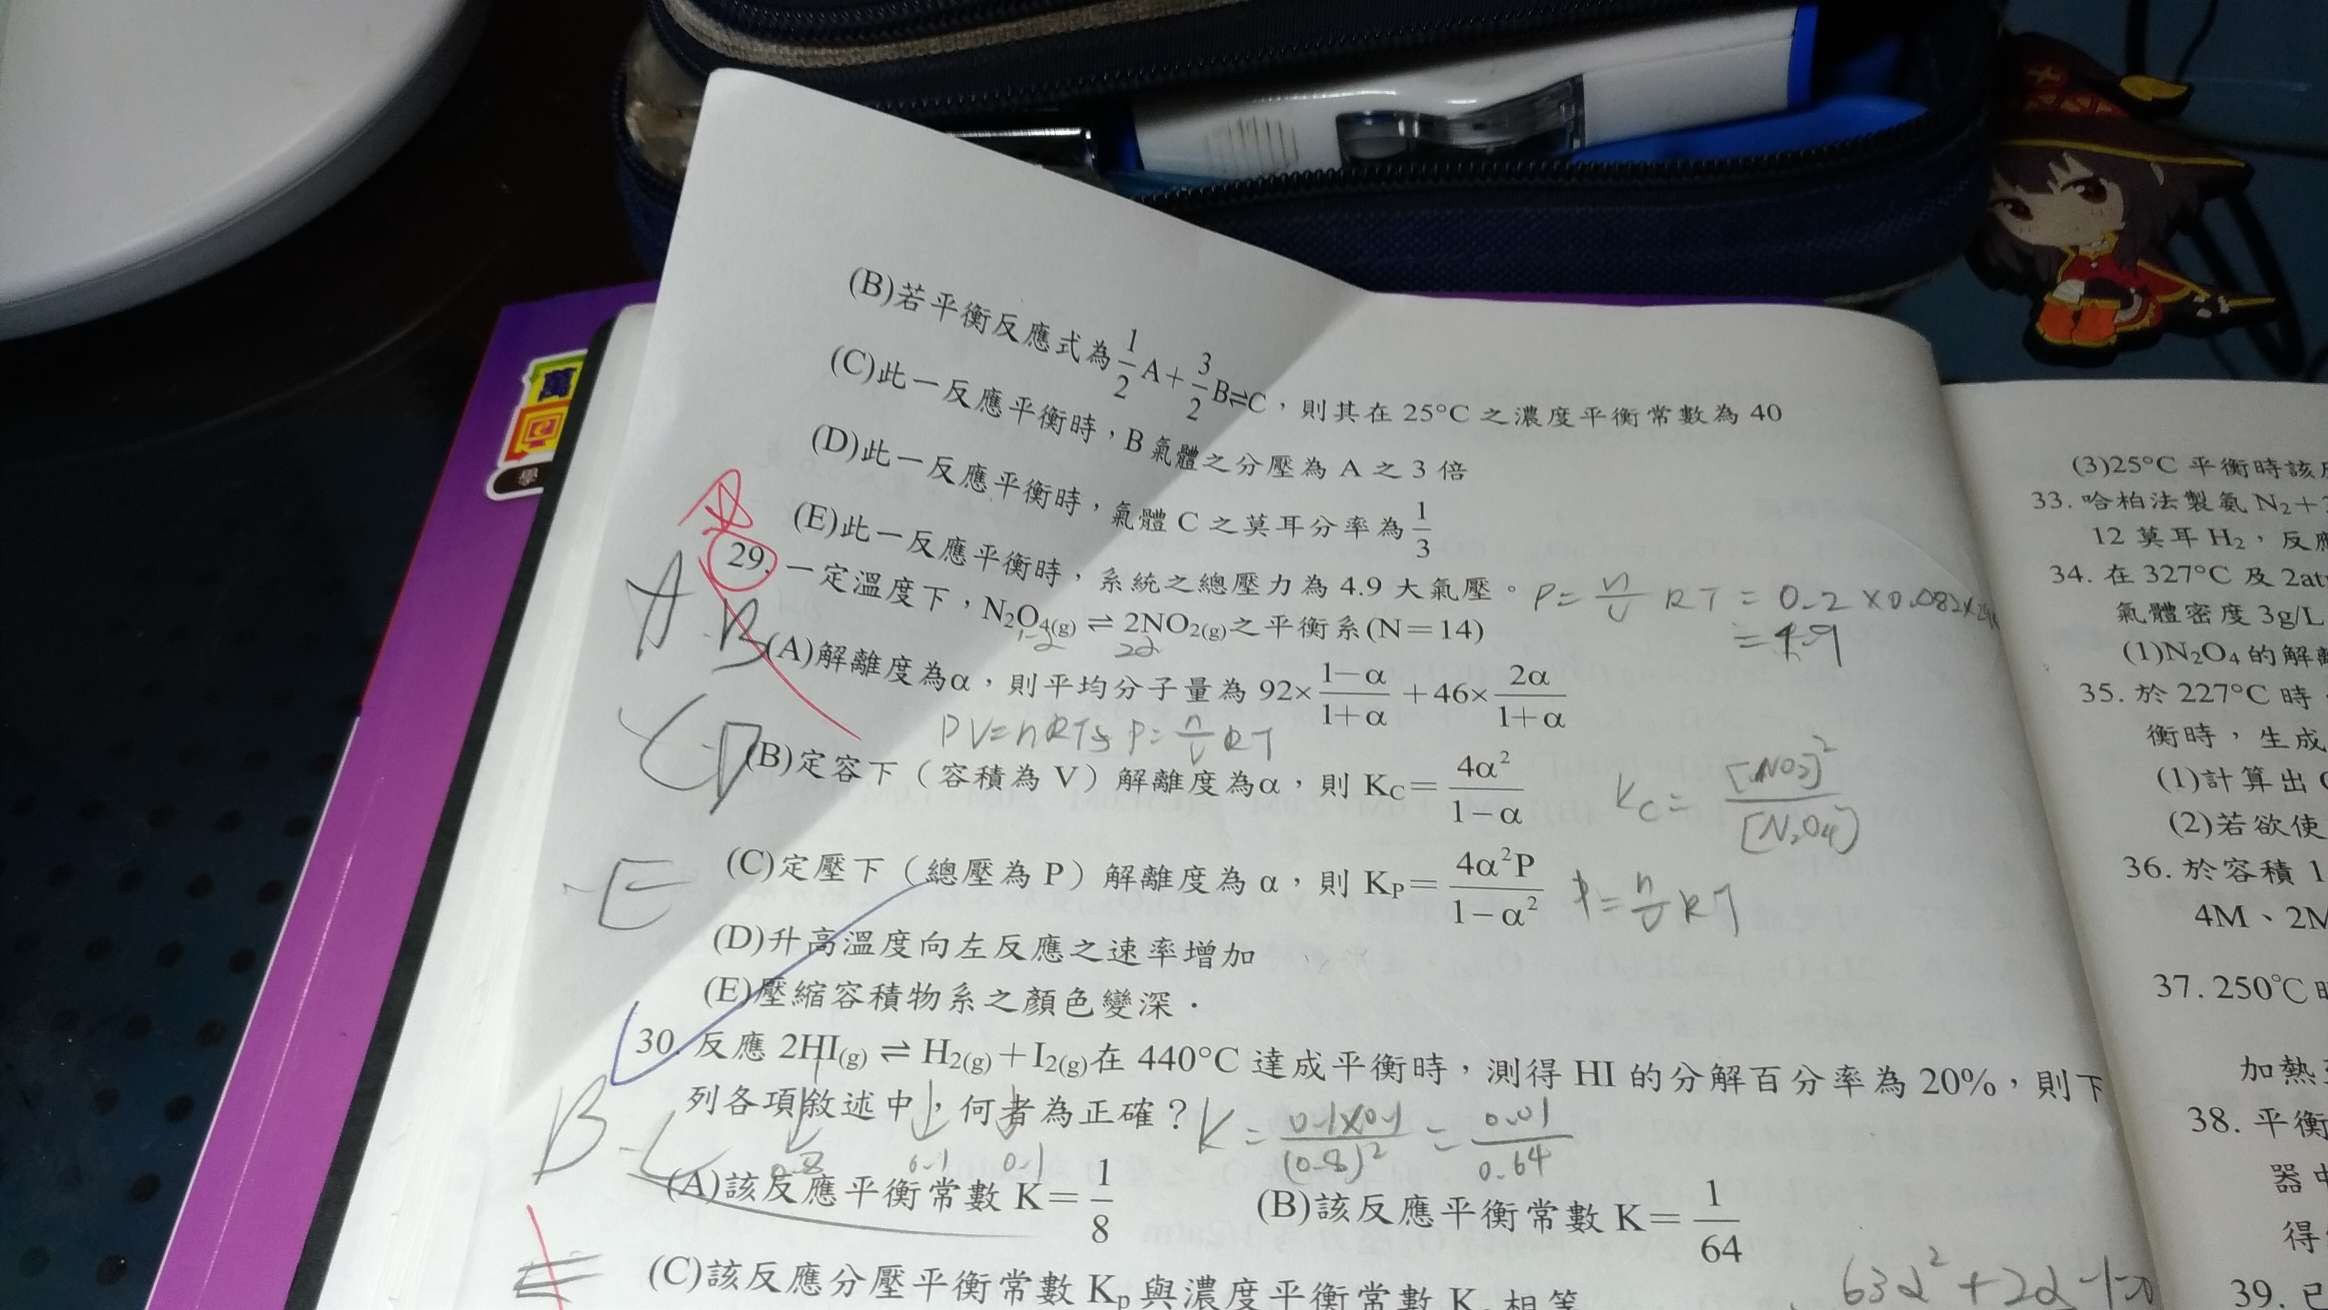 萬
學
(B)若平衡反應式為1/2 A+3/2 B⇌C,則其在 25°C 之濃度平衡常數為 40
(C)此一反應平衡時,B 氣體之分壓為 A 之 3 倍
(D)此一反應平衡時,氣體 C 之莫耳分率為 1/3
(E)此一反應平衡時,系統之總壓力為 4.9 大氣壓。
P= n/V RT = 0.2×0.082×
=4.9
A B C D E
29. 一定溫度下,N₂O₄(g) ⇌ 2NO₂(g)之平衡系(N=14)
1-α 2α
(A)解離度為α,則平均分子量為 92× (1-α)/(1+α) +46× 2α/(1+α)
PV=nRT P= n/V RT
(B)定容下(容積為 V)解離度為α,則 K_C= 4α²/(1-α)
K_C = [NO₂]²/[N₂O₄]
(C)定壓下(總壓為 P)解離度為 α,則 K_P= 4α²P/(1-α²)
P= n/V RT
(D)升高溫度向左反應之速率增加
(E)壓縮容積物系之顏色變深.
B C E
30. 反應 2HI(g) ⇌ H₂(g)+I₂(g)在 440°C 達成平衡時,測得 HI 的分解百分率為 20%,則下
列各項敘述中,何者為正確?
K = (0.1×0.1)/(0.8)² = 0.01/0.64
0.8 0.1 0.1
(A)該反應平衡常數 K= 1/8
(B)該反應平衡常數 K= 1/64
(C)該反應分壓平衡常數 Kp與濃度平衡常數 K 相等
63α²+2α-1=0
(3)25°C 平衡時該
33. 哈柏法製氨 N₂+
12 莫耳 H₂,反
34. 在 327°C 及 2at
氣體密度 3g/L
(1)N₂O₄ 的解
35. 於 227°C 時
衡時,生成
(1)計算出
(2)若欲使
36. 於容積 1
4M、2M
37. 250°C
加熱
38. 平衡
器
得
39. 已